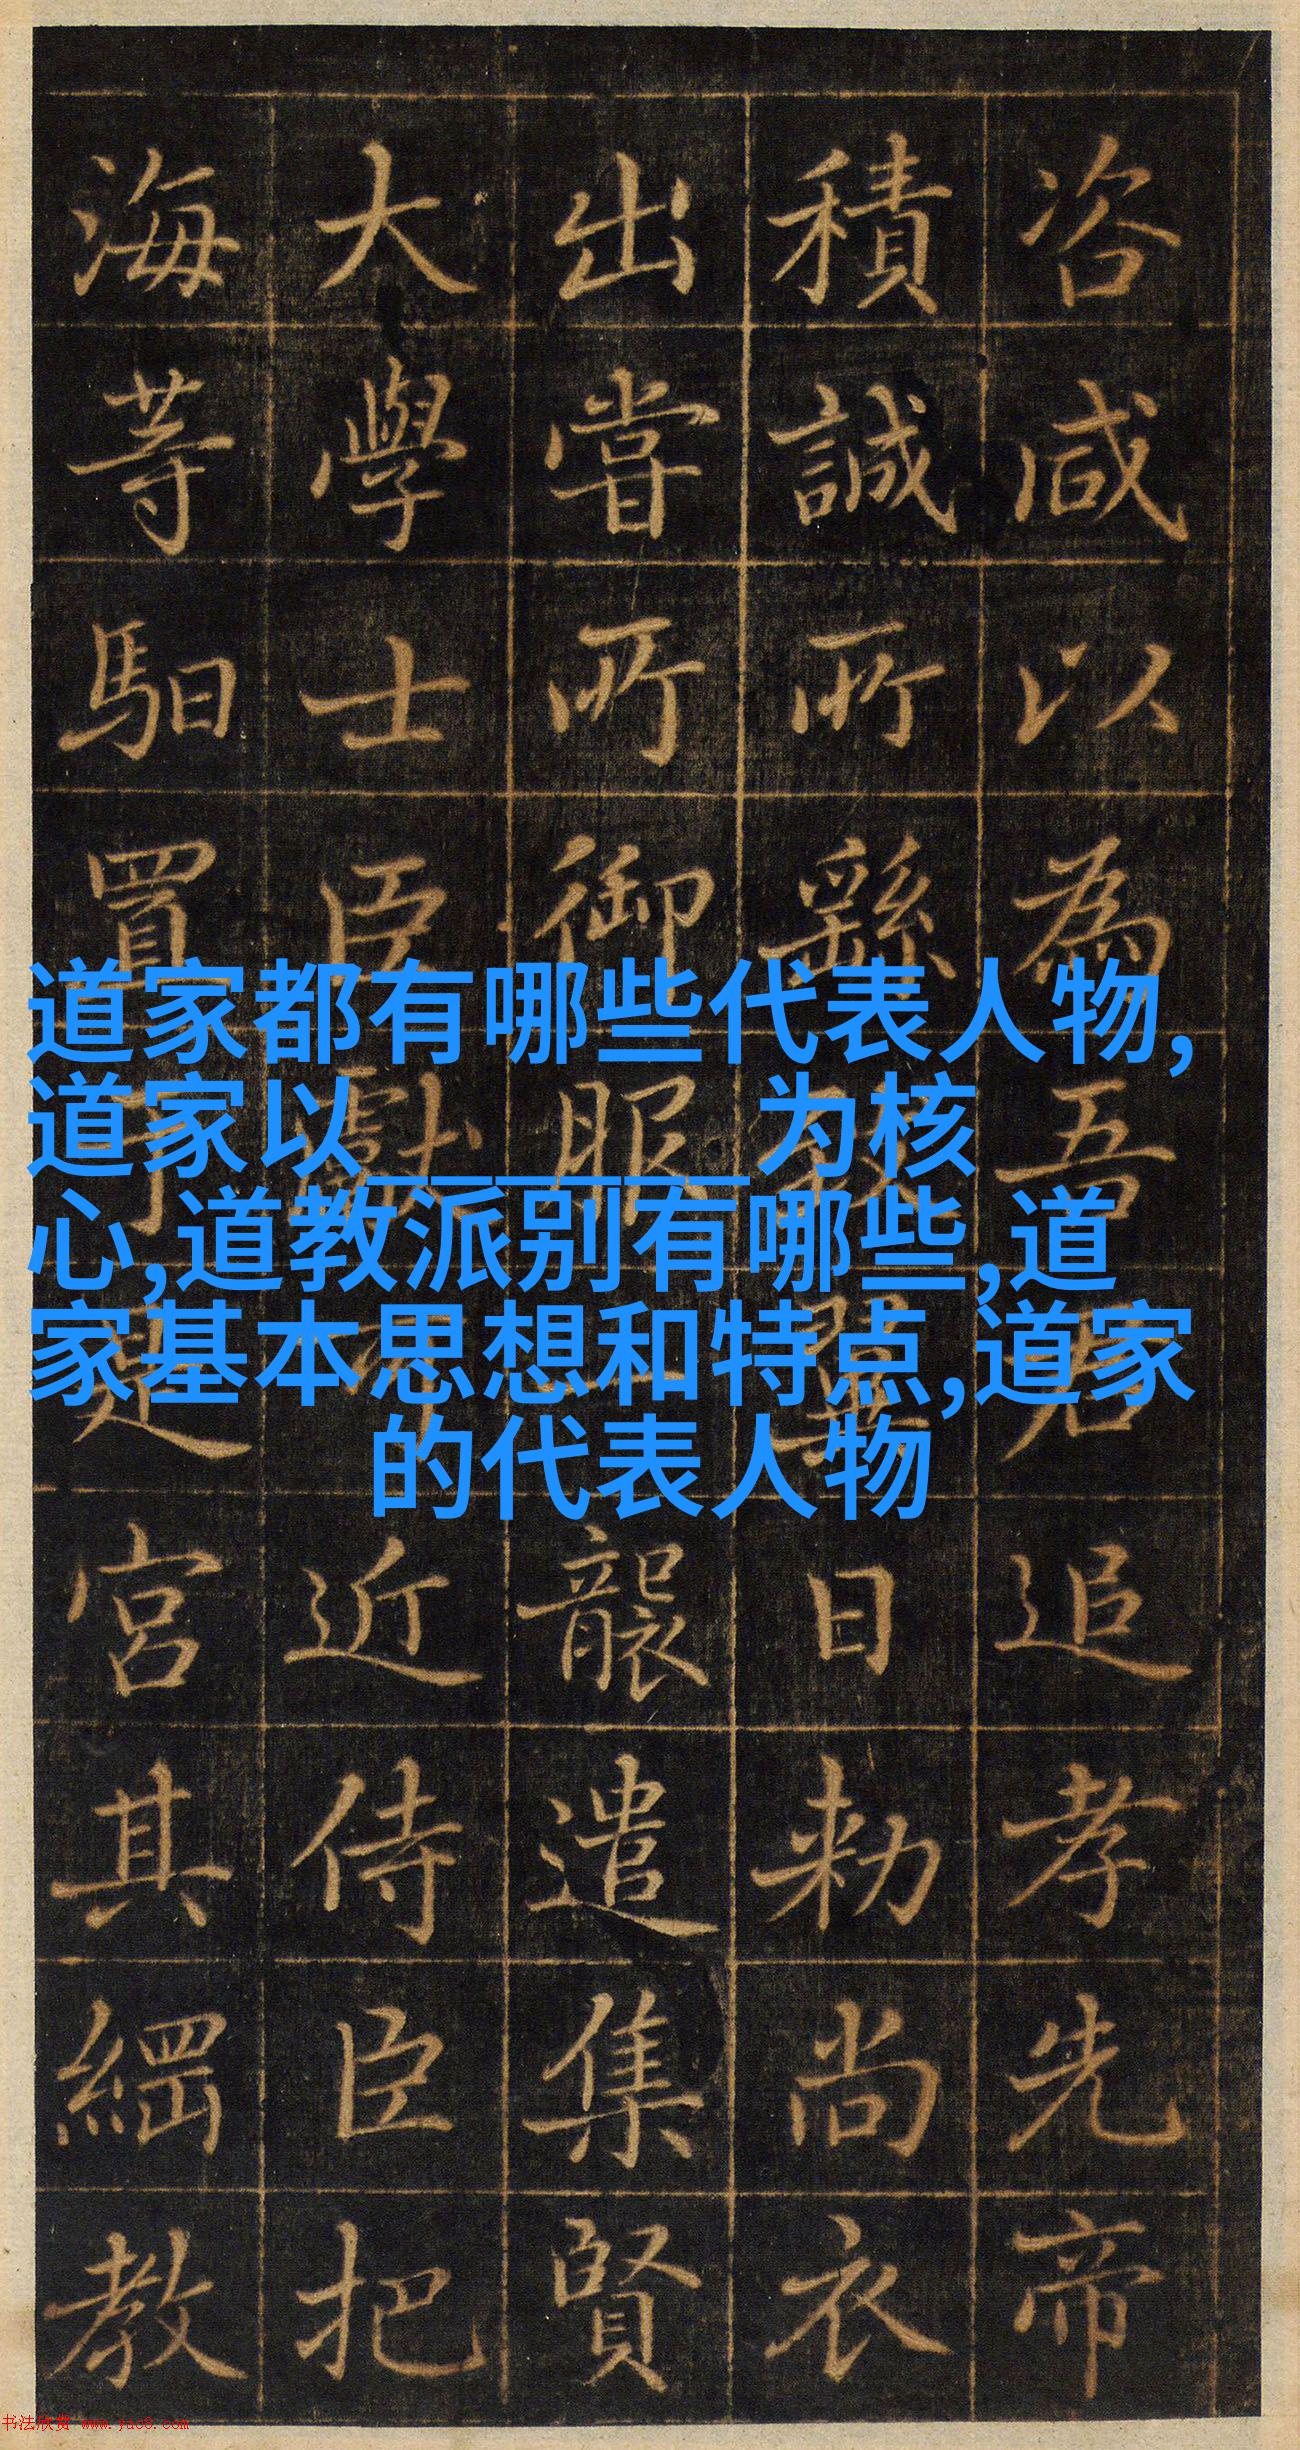 道家都有哪些代表人物,
道家以______为核
心,道教派别有哪些,道
家基本思想和特点,道家
的代表人物
咨咸以為吾君追孝先帝
積誠所繇致翼日勑尚衣
出嘗所御服一襲遣集賢
大學士臣獻可近侍臣把
海等馹置于建宮其繝教
书法欣赏 www.yac8.com